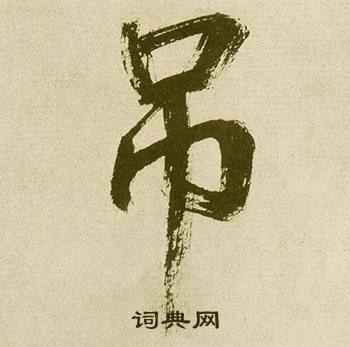 吊
词典网